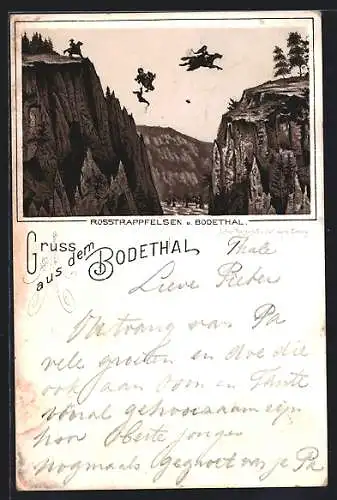 ROSSTRAPPFELSEN u. BODETHAL.
Gruss
aus dem
BODETHAL
Thale
Lieve Pieber
Ontvang van Pa
vele groeten en doe die
ook aan Oom en Tante
vooral gehoorzaam zijn
hoor
jongen
nogmaals gegroet van je Pa